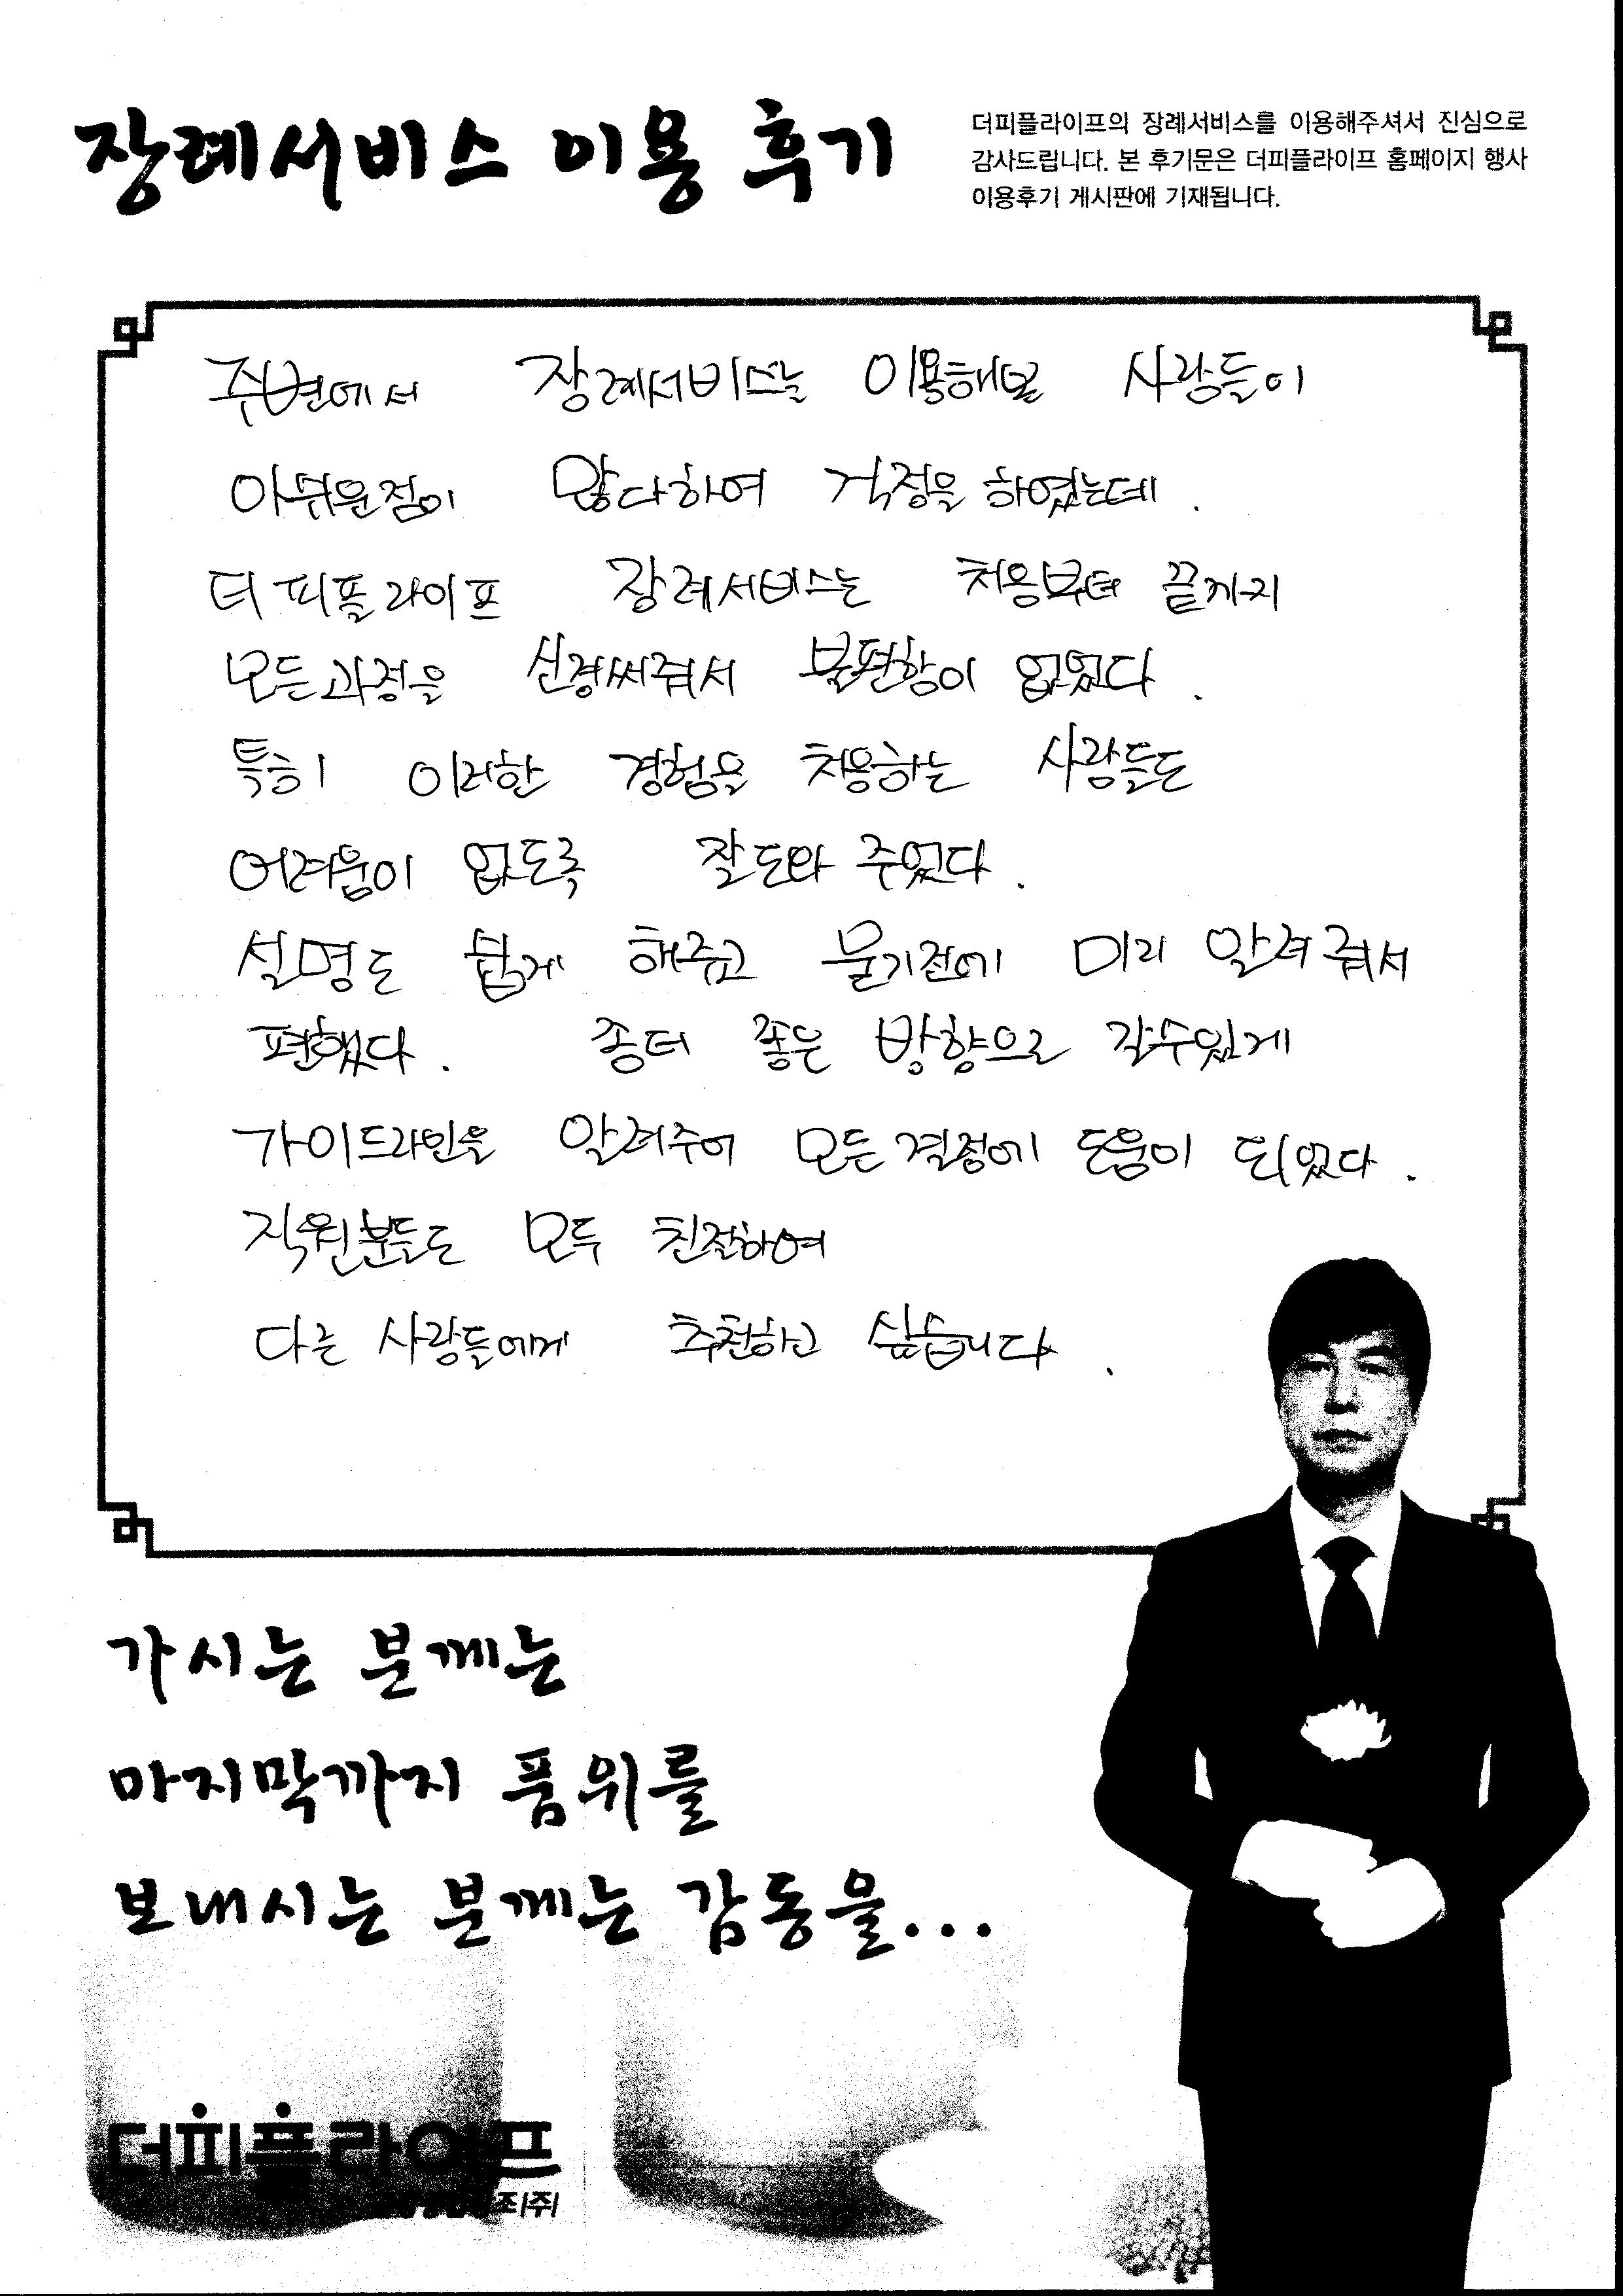 장례서비스 이용 후기
더피플라이프의 장례서비스를 이용해주셔서 진심으로
감사드립니다. 본 후기문은 더피플라이프 홈페이지 행사
이용후기 게시판에 기재됩니다.
주변에서 장례서비스는 이용해본 사람들이
아쉬운점이 많다하여 걱정을 하였는데.
더피플라이프 장례서비스는 처음부터 끝까지
모든과정을 신경써줘서 불편함이 없었다.
특히 이러한 경험을 처음하는 사람들도
어려움이 없도록 잘도와 주었다.
설명도 쉽게 해주고 묻기전에 미리 알려줘서
편했다. 좀더 좋은 방향으로 갈수있게
가이드라인을 알려주어 모든결정에 도움이 되었다.
직원분들도 모두 친절하여
다른 사람들에게 추천하고 싶습니다.
가시는 분께는
마지막까지 품위를
보내시는 분께는 감동을...
더피플라이프